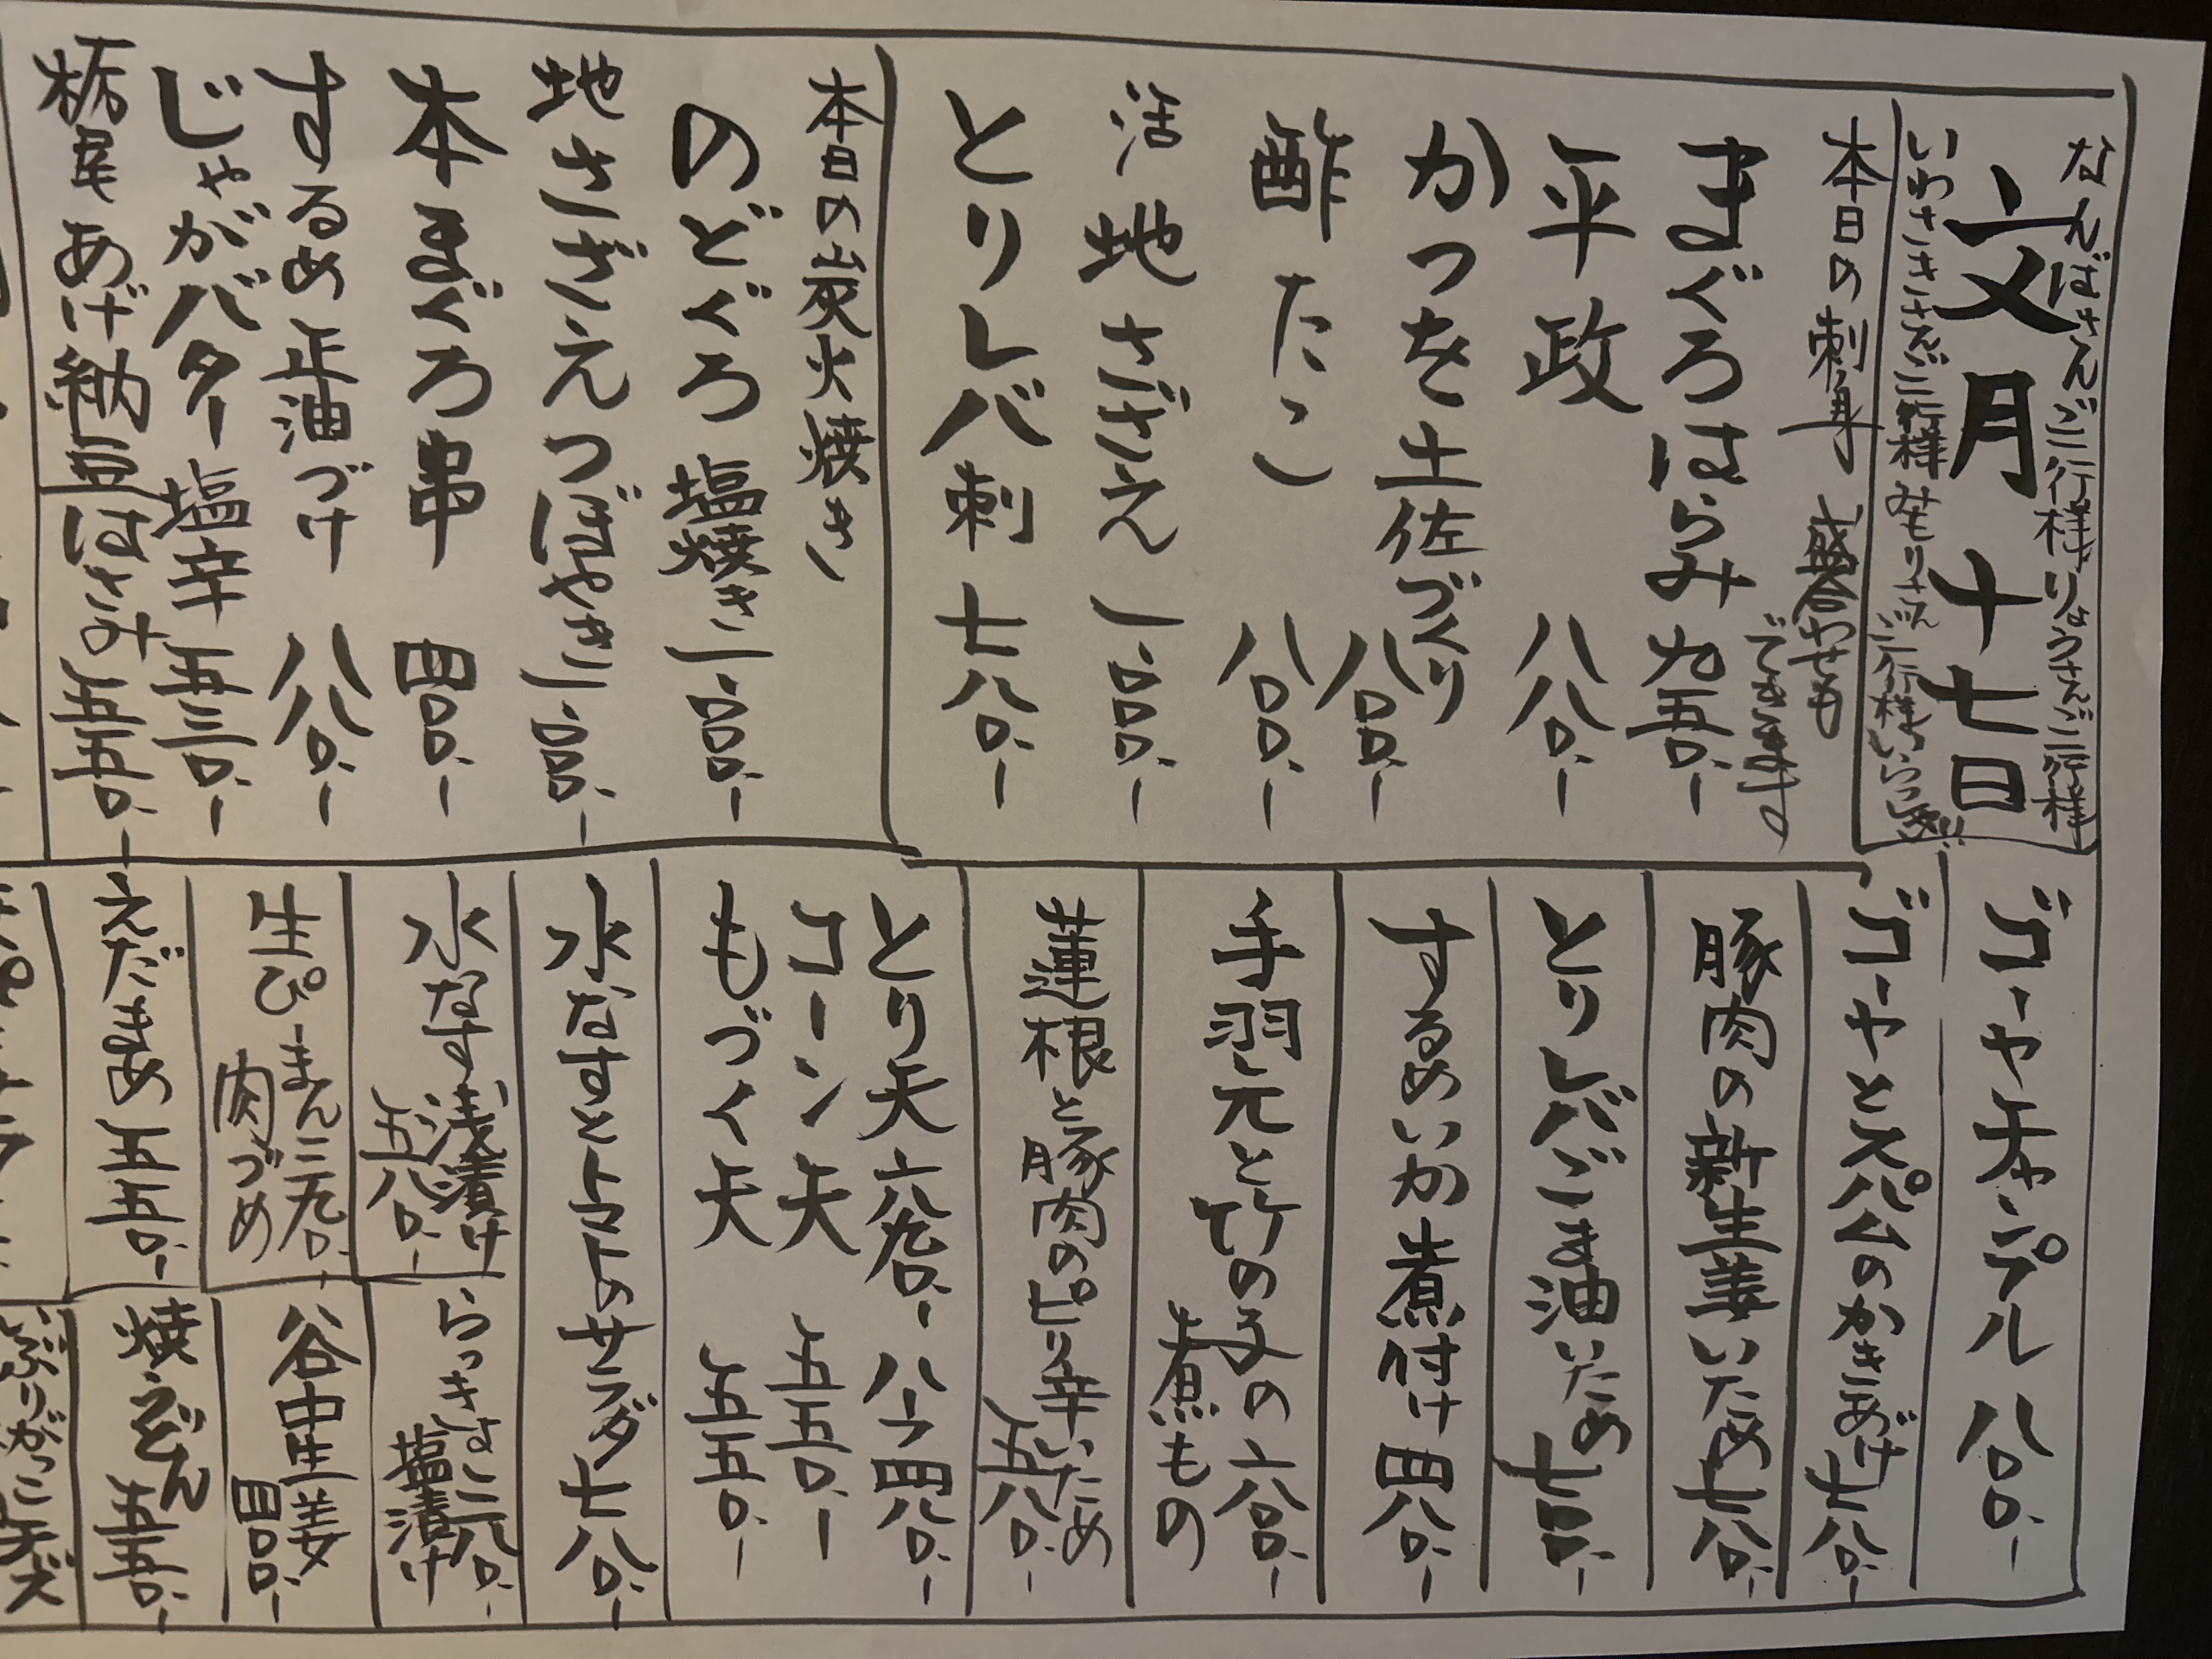 なんばさんご一行様 りょうさんご一行様
文月十七日
いわさきさんご一行様 みもりさんご一行様 いらっしゃい
本日の刺身 盛合わせも
できます
まぐろはらみ 九五〇.-
平政 八八〇.-
かつを土佐づくり
八八〇.-
酢たこ 八〇〇.-
活 地さざえ 一、〇〇〇.-
とりレバ刺 七八〇.-
本日の炭火焼き
のどぐろ塩焼き 一、〇〇〇.-
地さざえつぼやき 一、〇〇〇.-
本まぐろ串 四〇〇.-
するめ正油づけ 八八〇.-
じゃがバター塩辛 五三〇.-
栃尾あげ納豆はさみ 五五〇.-
ゴーヤチャンプル 八〇〇.-
ゴーヤとスパムのかきあげ 七八〇.-
豚肉の新生姜いため 七八〇.-
とりレバごま油いため 七〇〇.-
するめいか煮付け 四八〇.-
手羽元と竹の子の 六八〇.-
煮もの
蓮根と豚肉のピリ辛いため
五八〇.-
とり天 六九〇.- ハーフ 四八〇.-
コーン天 五五〇.-
もづく天 五五〇.-
水なすとトマトのサラダ 七八〇.-
水なす浅漬け
五八〇.-
らっきょ 二八〇.-
塩漬け
生ぴーまん 三九〇.-
肉づめ
谷中生姜
四〇〇.-
えだまめ 五五〇.-
焼うどん 五五〇.-
いぶりがっこ